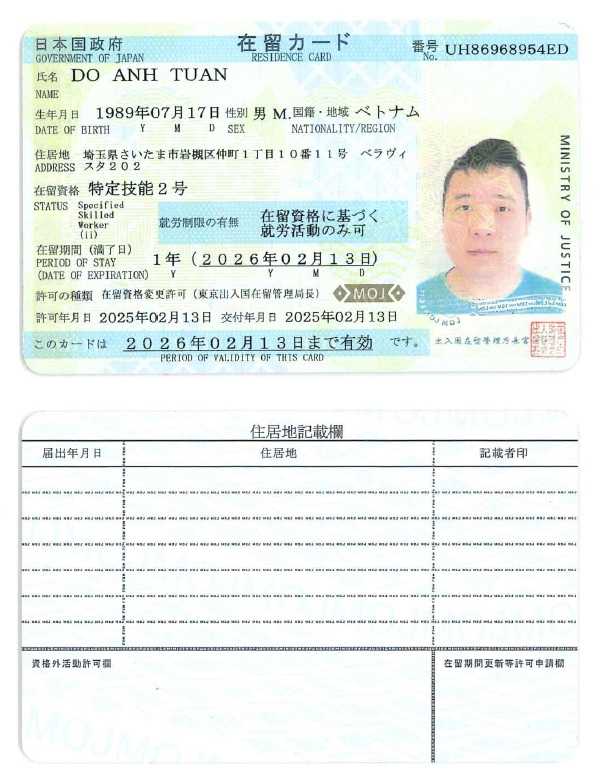 日本国政府 在留カード 番号 UH86968954ED
GOVERNMENT OF JAPAN RESIDENCE CARD No.
氏名 DO ANH TUAN
NAME
生年月日 1989年07月17日 性別 男 M. 国籍・地域 ベトナム
DATE OF BIRTH Y M D SEX NATIONALITY/REGION
住居地 埼玉県さいたま市岩槻区仲町1丁目10番11号 ベラヴィ
ADDRESS スタ202
在留資格 特定技能2号
STATUS Specified
Skilled
Worker
(ii)
就労制限の有無 在留資格に基づく
就労活動のみ可
在留期間(満了日)
PERIOD OF STAY
(DATE OF EXPIRATION)
1年(2026年02月13日)
Y Y M D
許可の種類 在留資格変更許可(東京出入国在留管理局長)
MOJ
許可年月日 2025年02月13日 交付年月日 2025年02月13日
このカードは 2026年02月13日まで有効 です。
PERIOD OF VALIDITY OF THIS CARD
MINISTRY OF JUSTICE
出入国在留管理庁長官
住居地記載欄
届出年月日 住居地 記載者印
資格外活動許可欄 在留期間更新等許可申請欄